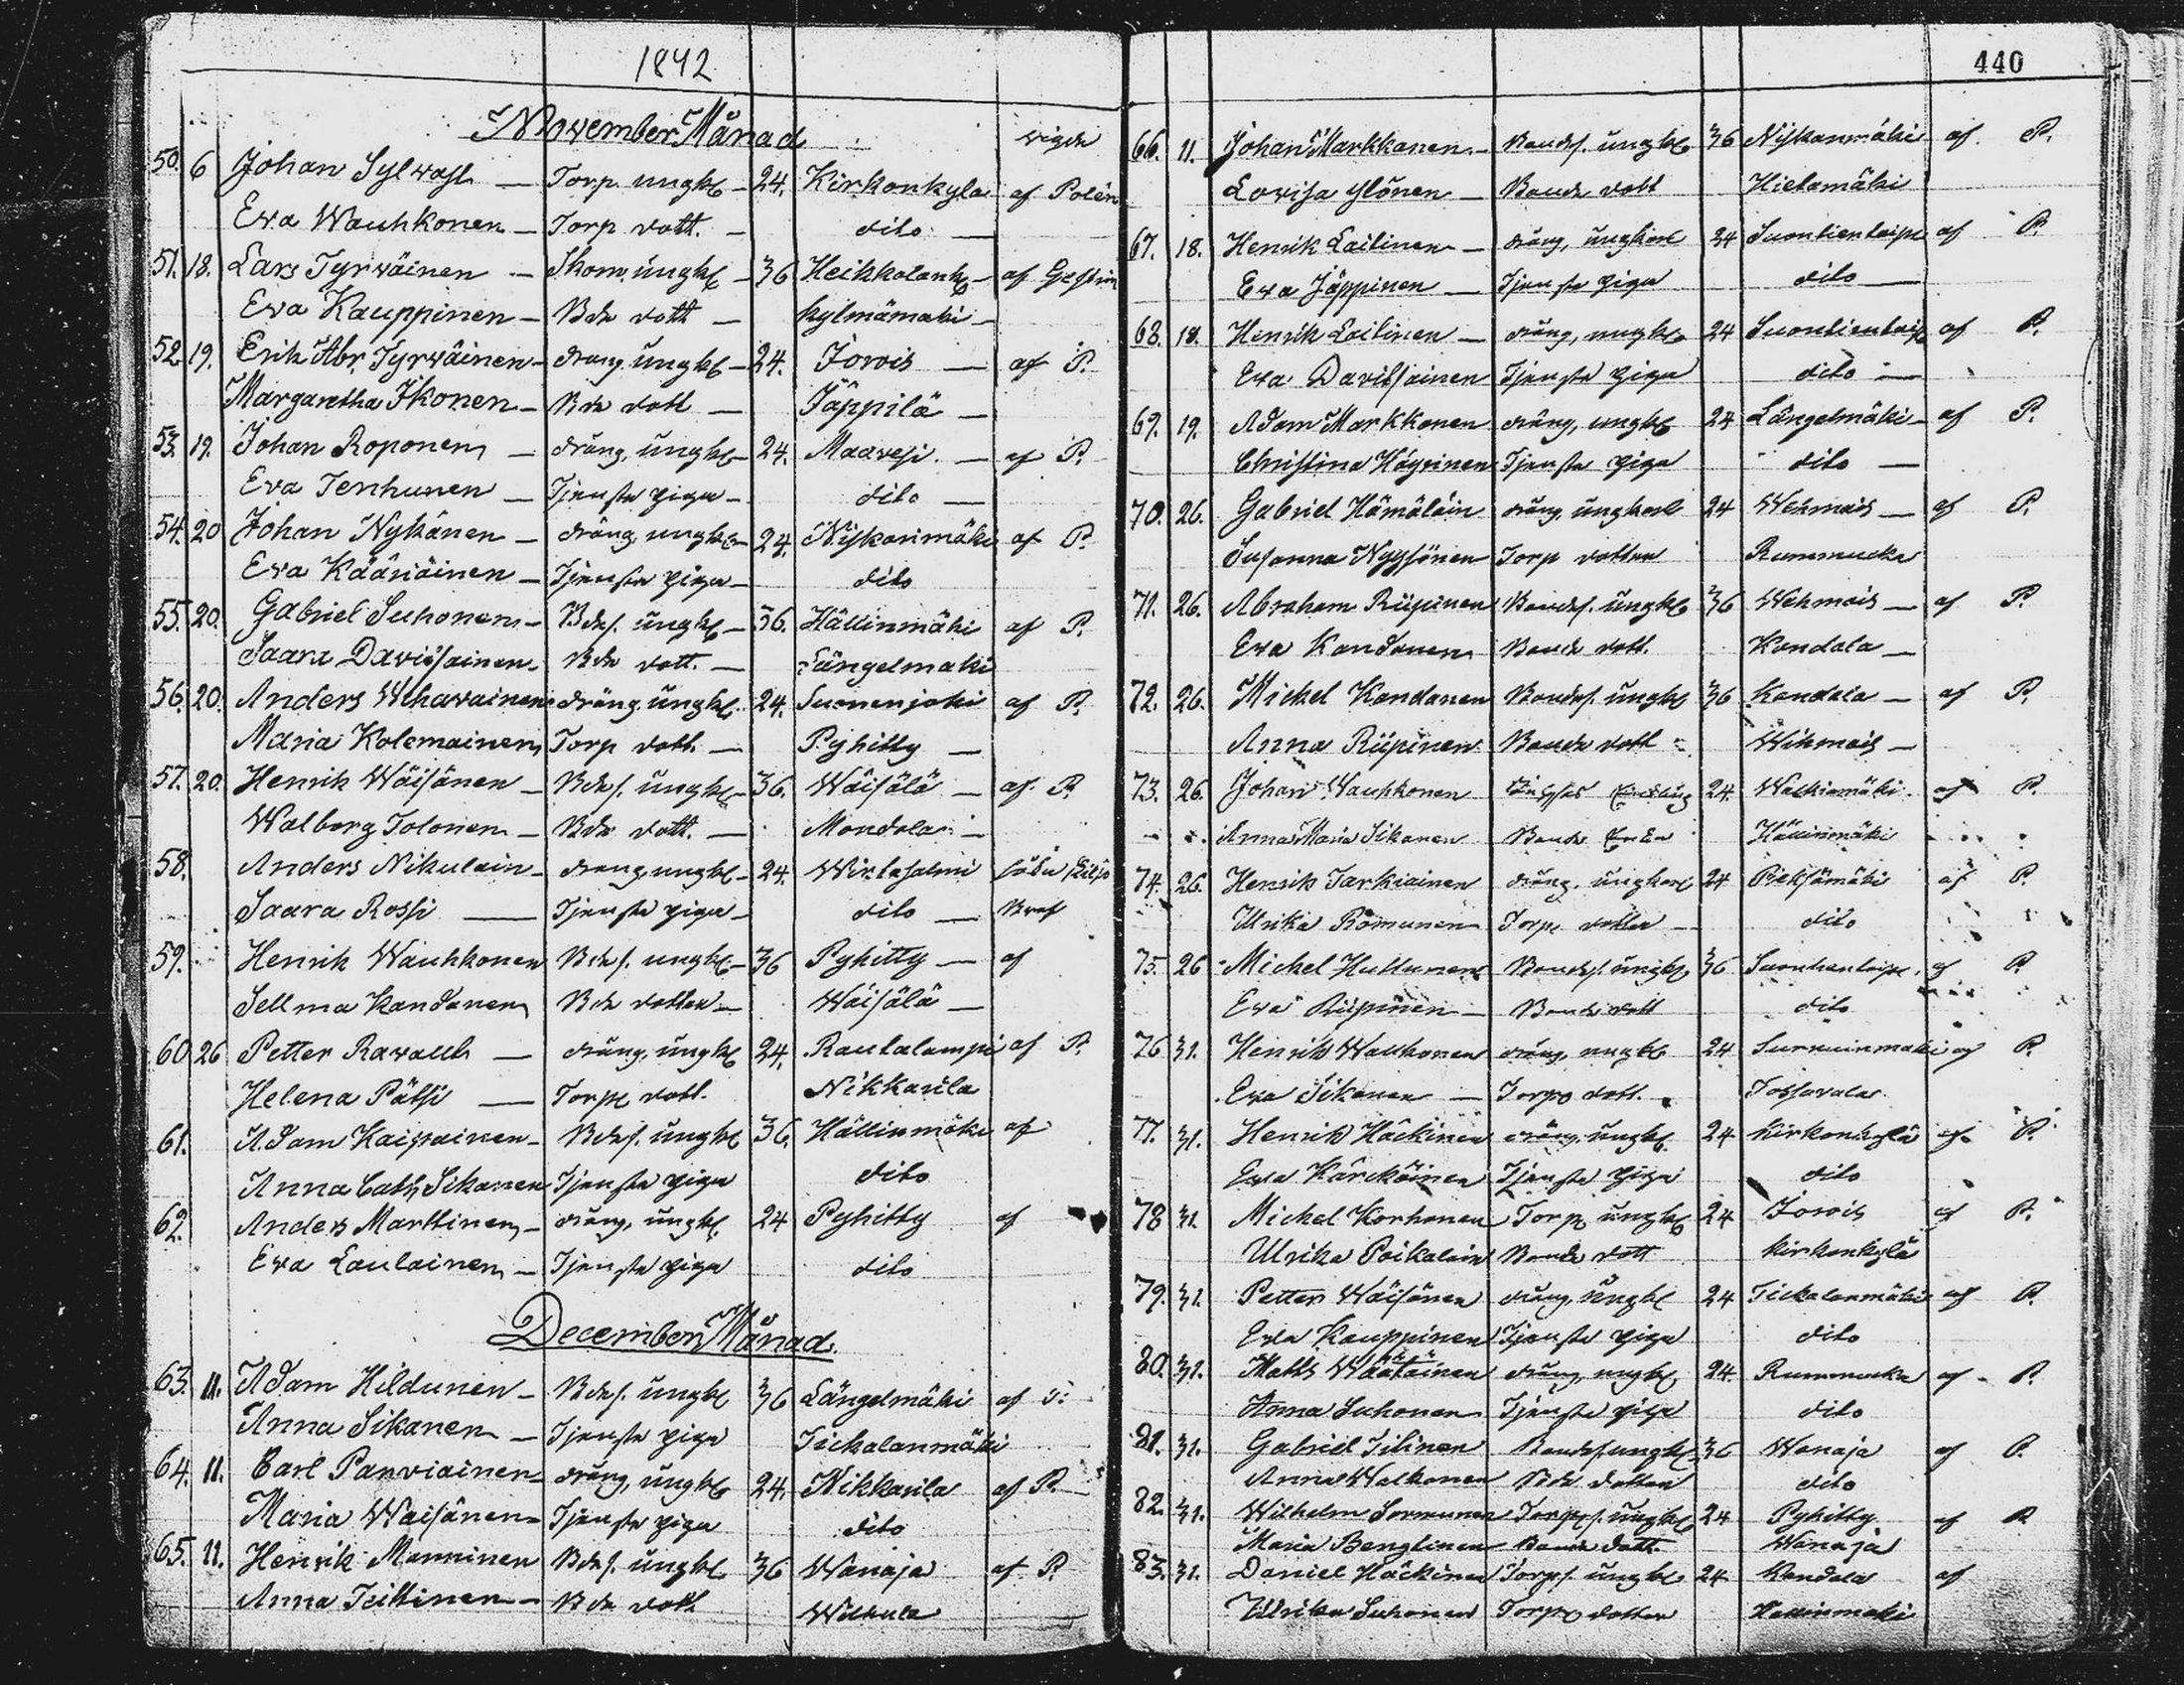 1842
November Månad
vigde
50. 6 Johan Sylvast — Torp. ungk — 24. Kirkonkyla af Polén
Eva Wauhkonen — Torp dott. — dito —
51. 18. Lars Tyrväinen — Skom. ungk — 36 Heikkolank — af Gestrin
Eva Kauppinen — Bde dott — kylmämaki —
52. 19. Erik Abr. Tyrväinen — dräng. ungk — 24. Jorois — af P.
Margaretha Ikonen — Bde dott — Jäppilä —
53. 19. Johan Roponen — dräng. ungk — 24. Maavesi. — af P.
Eva Tenhunen — Tjenste piga — dito —
54. 20 Johan Nykänen — dräng ungk — 24. Nykarimäki af P.
Eva Kääriäinen — Tjenste piga — dito
55. 20. Gabriel Suhonen — Bdes. ungk — 36. Hällinmäki af P.
Saara Davidsainen — Bde dott. — Längelmaki
56. 20. Anders Wehavainen dräng ungk. 24. Suonenjoki af P.
Maria Kolemainen Torp dott. — Pyhitty —
57. 20. Henrik Wäisänen — Bdes. ungk — 36. Wäisälä — af P.
Walborg Tolonen — Bde dott. — Mondola —
58. Anders Nikulain — dräng ungk — 24. Wirtasalmi
Saara Rossi — Tjenste piga — dito —
59. Henrik Wauhkonen Bdes. ungk — 36 Pyhitty — af
Sellma Kandanen Bde dotter — Wäisälä —
60 26 Petter Ravault — dräng, ungk 24. Rautalampi af P.
Helena Pätsi — Torp dott. Nikkarila
61. Adam Kaipainen — Bdes. ungk 36. Hällinmäki af
Anna Cath Sikanen Tjenste piga dito
62. Anders Marttinen — dräng, ungk. 24 Pyhitty af
Eva Laulainen — Tjenste piga dito
December Månad.
63. 11. Adam Hildunen — Bdes. ungk 36 Längelmäki af P.
Anna Sikanen — Tjenste piga Tickalanmäki
64. 11. Carl Parviainen — dräng, ungk 24. Nikkarila af P.
Maria Waisänen — Tjenste piga dito
65. 11. Henrik Manninen Bdes. ungk 36 Wanaja af P.
Anna Teittinen — Bde dott Wilhula
440
66. 11. Johan Markkanen — Bondes. ungk 36 Nykanmäki af P.
Lovisa Ylönen — Bonde dott Hietamäki
67. 18. Henrik Laitinen — dräng, ungkarl 24 Suontientaipe af P.
Eva Jäppinen — Tjenste piga dito —
68. 18. Henrik Laitinen — dräng, ungk 24 Suontientaip af P.
Eva Davidsainen Tjenste piga dito —
69. 19. Adam Markkonen dräng, ungk 24 Längelmäki — af P.
Christina Häyrinen Tjenste piga dito —
70. 26. Gabriel Hämäläin dräng ungkarl 24 Wehmais — af P.
Susanna Nyyssönen Torp dotter Rummucka
71. 26. Abraham Riipinen Bondes. ungk 36 Wehmais — af P.
Eva Kandonen Bonde dott. Kandala —
72. 26. Michel Kandanen Bondes. ungk 36 Kandala — af P.
Anna Riipinen Bonde dott Wihmais —
73. 26. Johan Wauhkonen 24. Walkiamäki af P.
Anna Maria Sikanen Bonde Enka Hällinmäki
74. 26. Henrik Tarkiainen dräng. ungkarl 24 Pieksämäki af P.
Ulrika Romunen Torp dotter — dito
75. 26 Michel Huttunen Bondes. ungk 36 Suontientaipe af P.
Eva Riipinen — Bonde dott dito
76 31. Henrik Wauhkonen dräng, ungk 24 Surnuinmaki af P.
Eva Sikanen — Torp dott. Tossavala
77. 31. Henrik Häckinen dräng, ungk. 24 Kirkonkylä af P.
Eva Kärckäinen Tjenste piga dito
78 31. Michel Korhonen Torp. ungk 24 Jorois af P.
Ulrika Poikalain Bonde dott Kirkonkylä
79. 31. Petter Wäisänen dräng, ungk 24 Tickalanmäki af P.
Eva Kauppinen Tjenste piga dito
80. 31. Matts Wäätäinen dräng, ungk 24. Rummucka af P.
Anna Suhonen Tjenste piga dito
81. 31. Gabriel Tilinen Bondes. ungk 36 Wanaja af P.
Anna Walkonen Bde dotter dito
82. 31. Wilhelm Sormunen Torps. ungk 24 Pyhitty af P.
Maria Benglinen Bonde dott. Wanaja
83. 31. Daniel Häckinen Torps. ungk 24 Kandala af
Ulrika Suhonen Torp dotter Hällinmäki